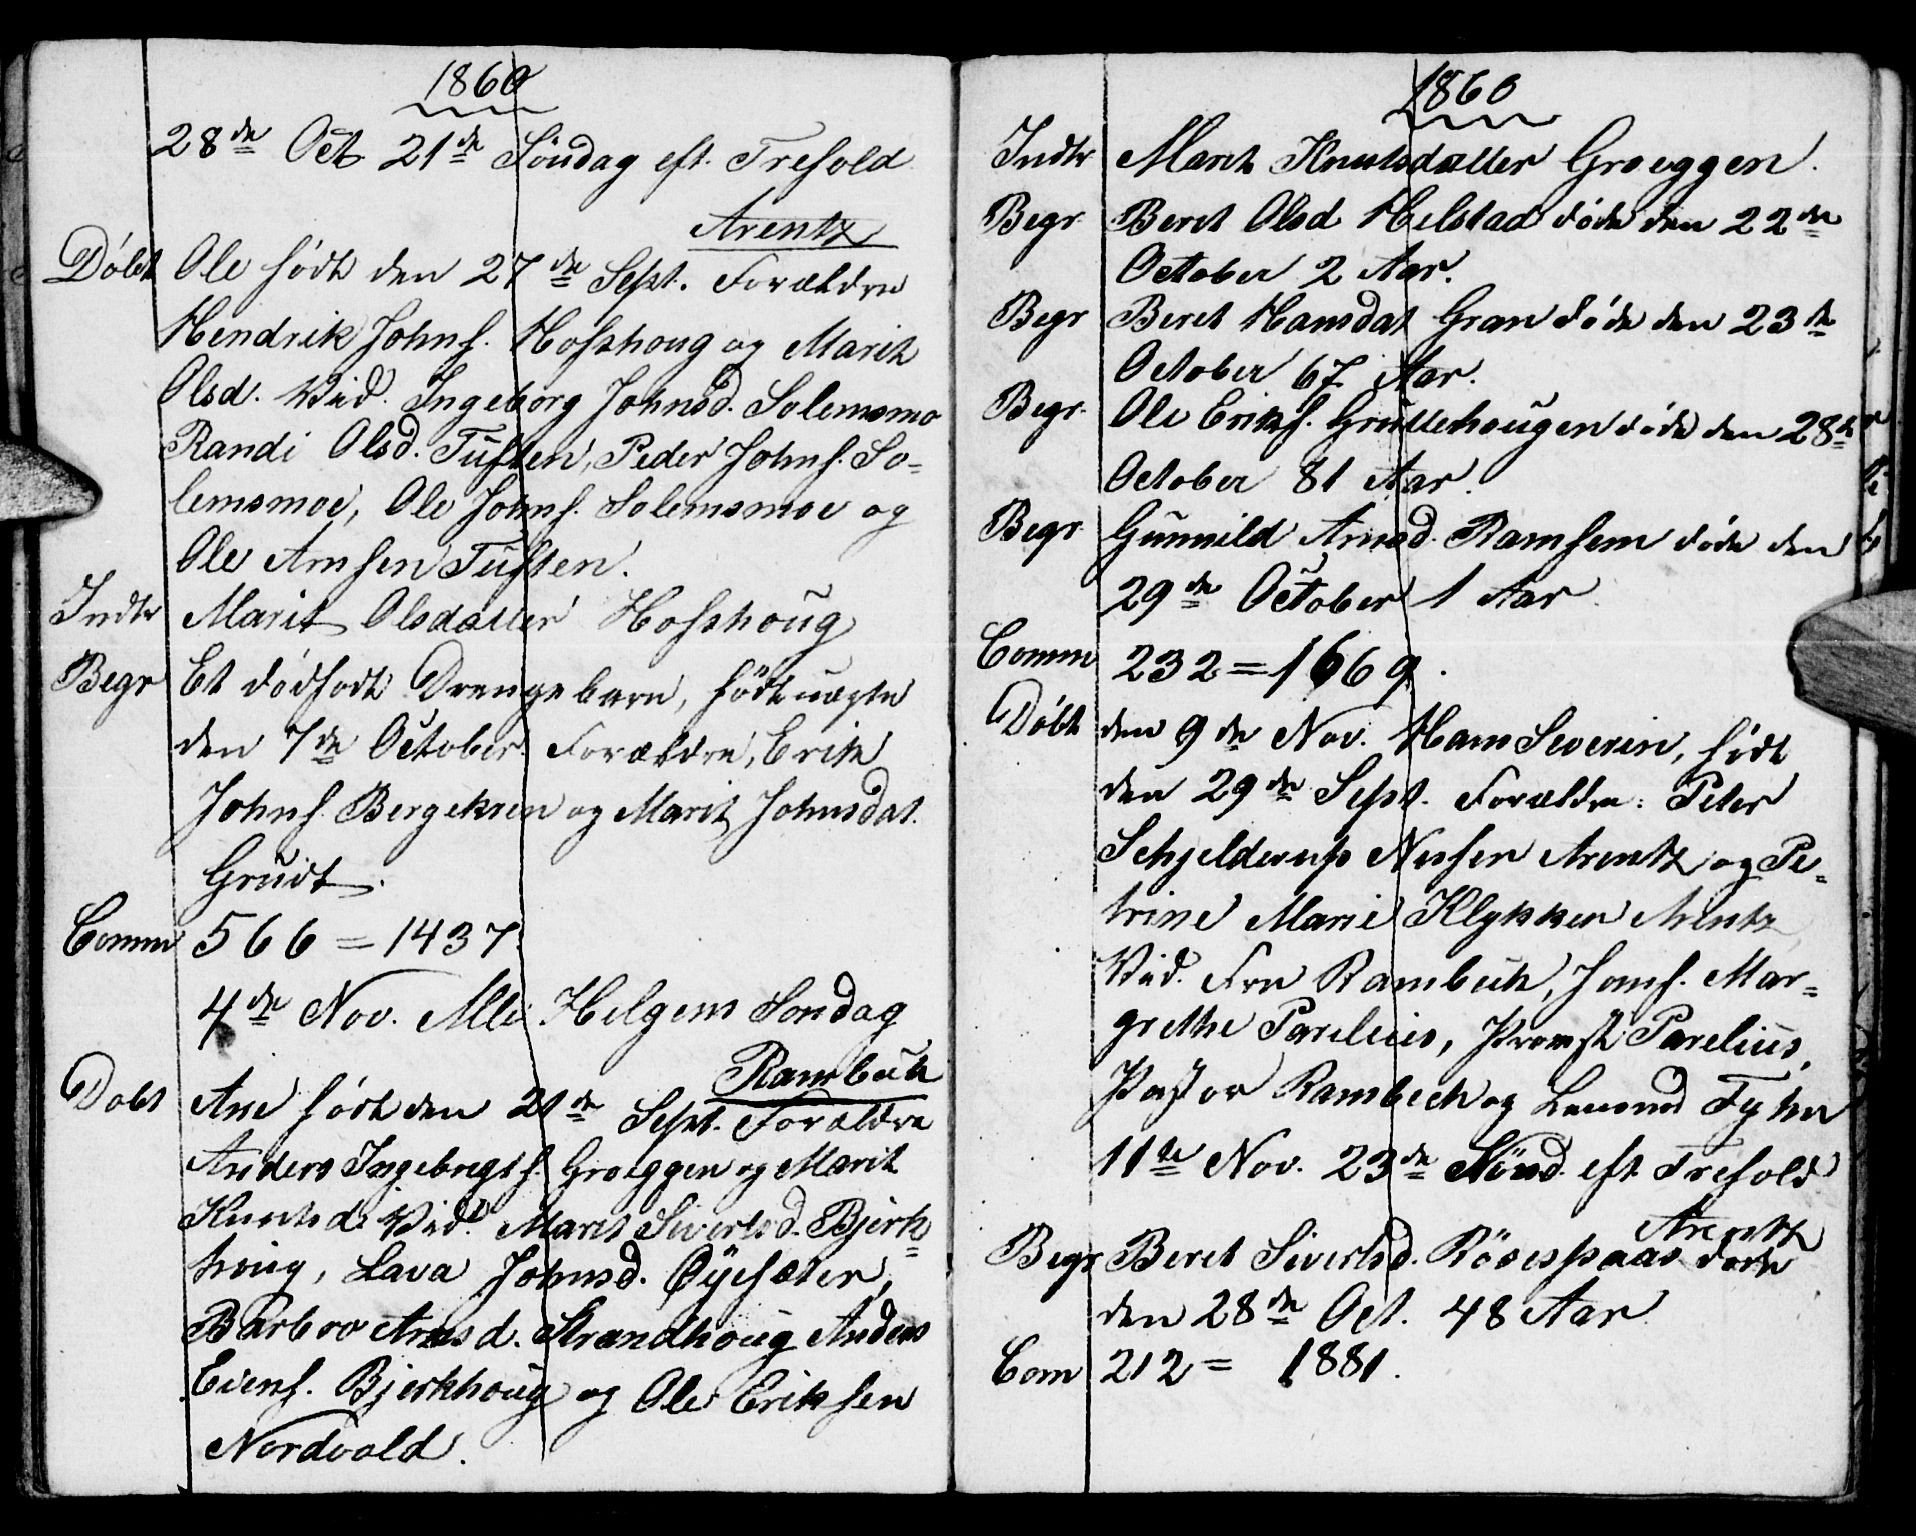 1860
28de Oct 21de Söndag eft. Trefold
Arentz
Döbt Ole födt den 27de Sept. Forældre
Hendrik Johns. Hofshoug og Marit
Olsd. Vid. Ingeborg Johnsd. Solemsmo
Randi Olsd. Tuften, Peder Johns. So=
lemsmoe, Ole Johns. Solemsmoe og
Ole Arnsen Tuften.
Indtr Marit Olsdatter Hofshoug
Begr Et dödfödt Drengebarn, födt uægte
den 7de October. Forældre, Erik
Johns. Bergeksen og Marit Johnsdat.
Grudt.
Comm 566 = 1437.
4de Nov. Alle Helgens Söndag
Rambech
Döbt Ane födt den 21de Sept. Forældre
Anders Ingebrigts. Groeggen og Marit
Knutsd. Vid. Marit Sivertsd. Bjerk=
houg, Lava Johnsd. Öyesæter,
Barbro Arnsd. Strandhoug Anders
Evens. Bjerkhoug og Ole Eriksen
Nordvold.
1860
Indtr Marit Knutsdatter Groeggen.
Begr. Beret Olsd Helstad döde den 22de
October 2 Aar.
Begr Beret Hansdat Gran döde den 23de
October 67 Aar.
Begr. Ole Eriks. Gruttehougen döde den 28de
October 81 Aar.
Begr Gunnild Arnsd. Ramsem döde den
29de October 1 Aar.
Comm 232 = 1669.
Döbt den 9de Nov. Hans Severin, födt
den 29de Sept. Forældre: Peter
Schjelderup Nissen Arentz og Pe=
trine Marie Klykken Arentz
Vid. Fru Rambech, Jomf. Mar=
grethe Parelius, Provst Parelius,
Pastor Rambech og Lensmd
11te Nov. 23de Sönd. eft Trefold
Arentz
Begr Beret Sivertsd. Rösespaas döde
den 28de Oct. 48 Aar
Com 212 = 1881.